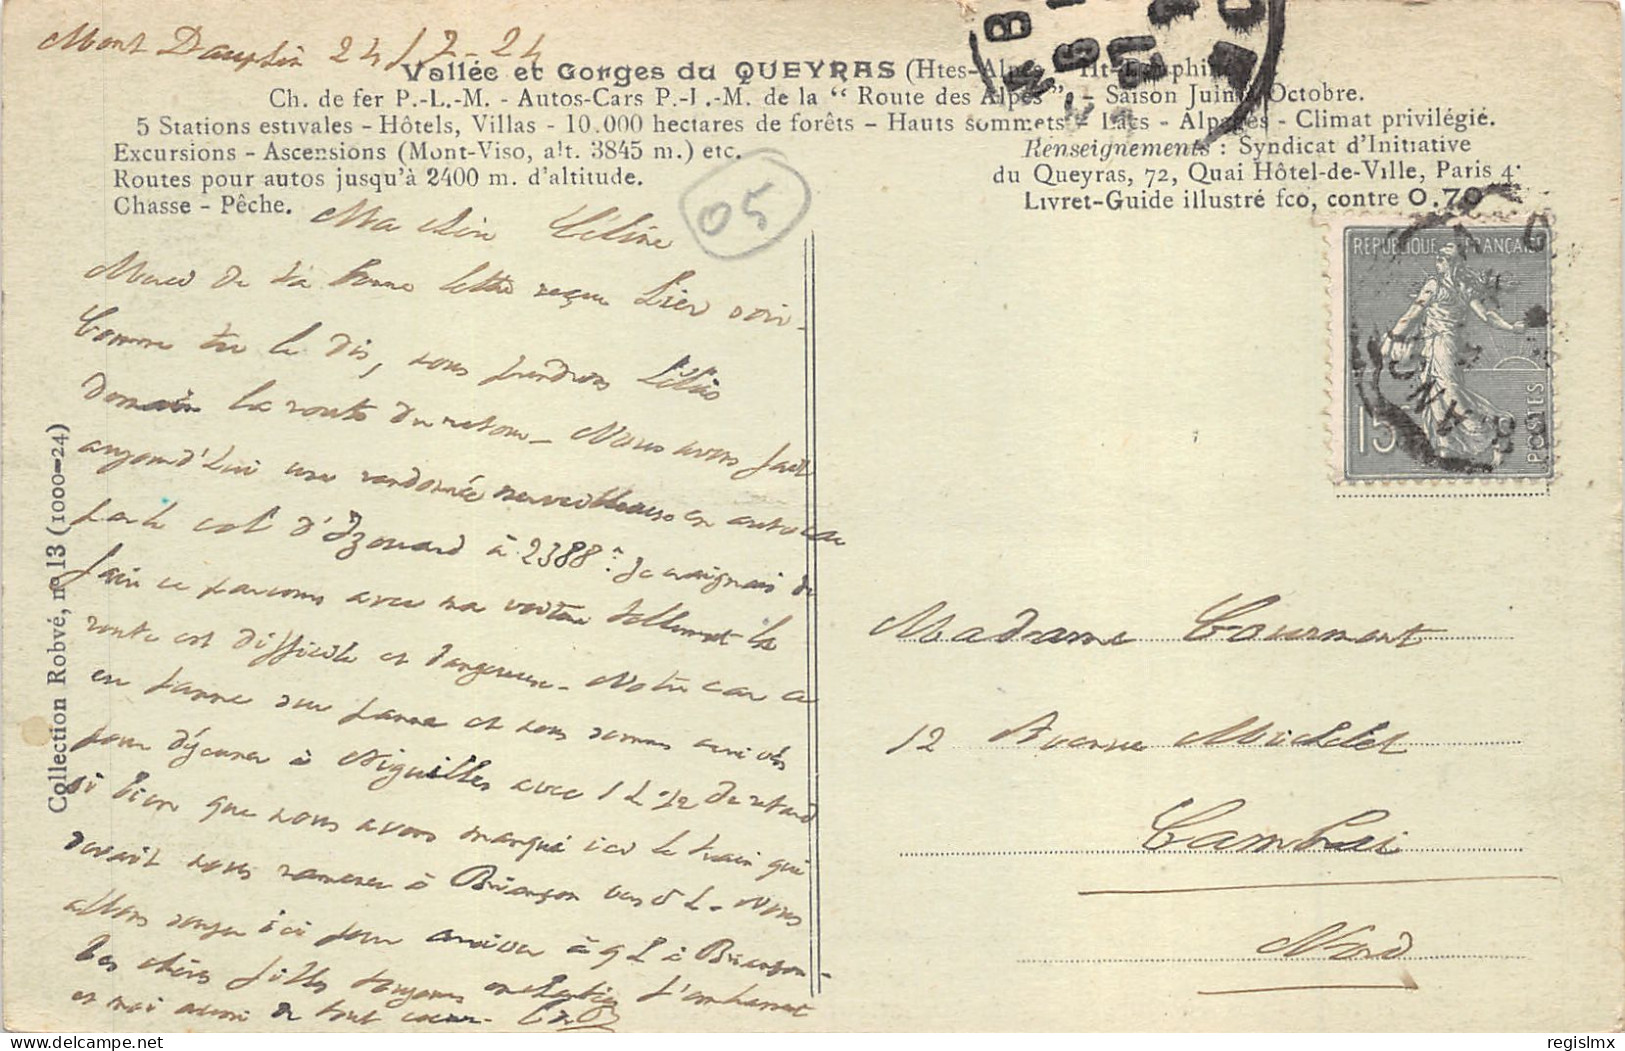 Mont Dauphin 24/7-24
Vallée et Gorges du QUEYRAS (Htes-Alpes - Ht-Dauphiné
Ch. de fer P.-L.-M. - Autos-Cars P.-L.-M. de la " Route des Alpes" - Saison Juin à Octobre.
5 Stations estivales - Hôtels, Villas - 10.000 hectares de forêts - Hauts sommets - Lacs - Alpages - Climat privilégié.
Excursions - Ascensions (Mont-Viso, alt. 3845 m.) etc.
Routes pour autos jusqu'à 2400 m. d'altitude.
Chasse - Pêche.
Renseignements : Syndicat d'Initiative
du Queyras, 72, Quai Hôtel-de-Ville, Paris 4e
Livret-Guide illustré fco, contre 0.70
05
Ma chère Céline
Merci de ta bonne lettre reçue hier soir.
Comme tu le dis, nous prendrons
demain la route du retour - Nous avons fait
aujourd'hui une randonnée merveilleuse en autocar
par le col d'Izouard à 2388m. Je craignais de
faire ce parcours avec ma voiture tellement la
route est difficile et dangereuse - Notre car a
eu panne sur panne et nous sommes arrivés
pour déjeuner à Aiguilles avec 1 h 1/2 de retard
si bien que nous avons manqué ici le train qui
devait nous ramener à Briançon vers 5 h. Nous
allons souper ici pour arriver à 9 h à Briançon -
Tes chères filles toujours enchantées t'embrassent
et moi aussi de tout coeur.
Collection Robvé, no 13 (1000-24)
REPUBLIQUE FRANÇAISE
15c
POSTES
Madame Cournant
12 Avenue Michelet
Cambrai
Nord
regislmx